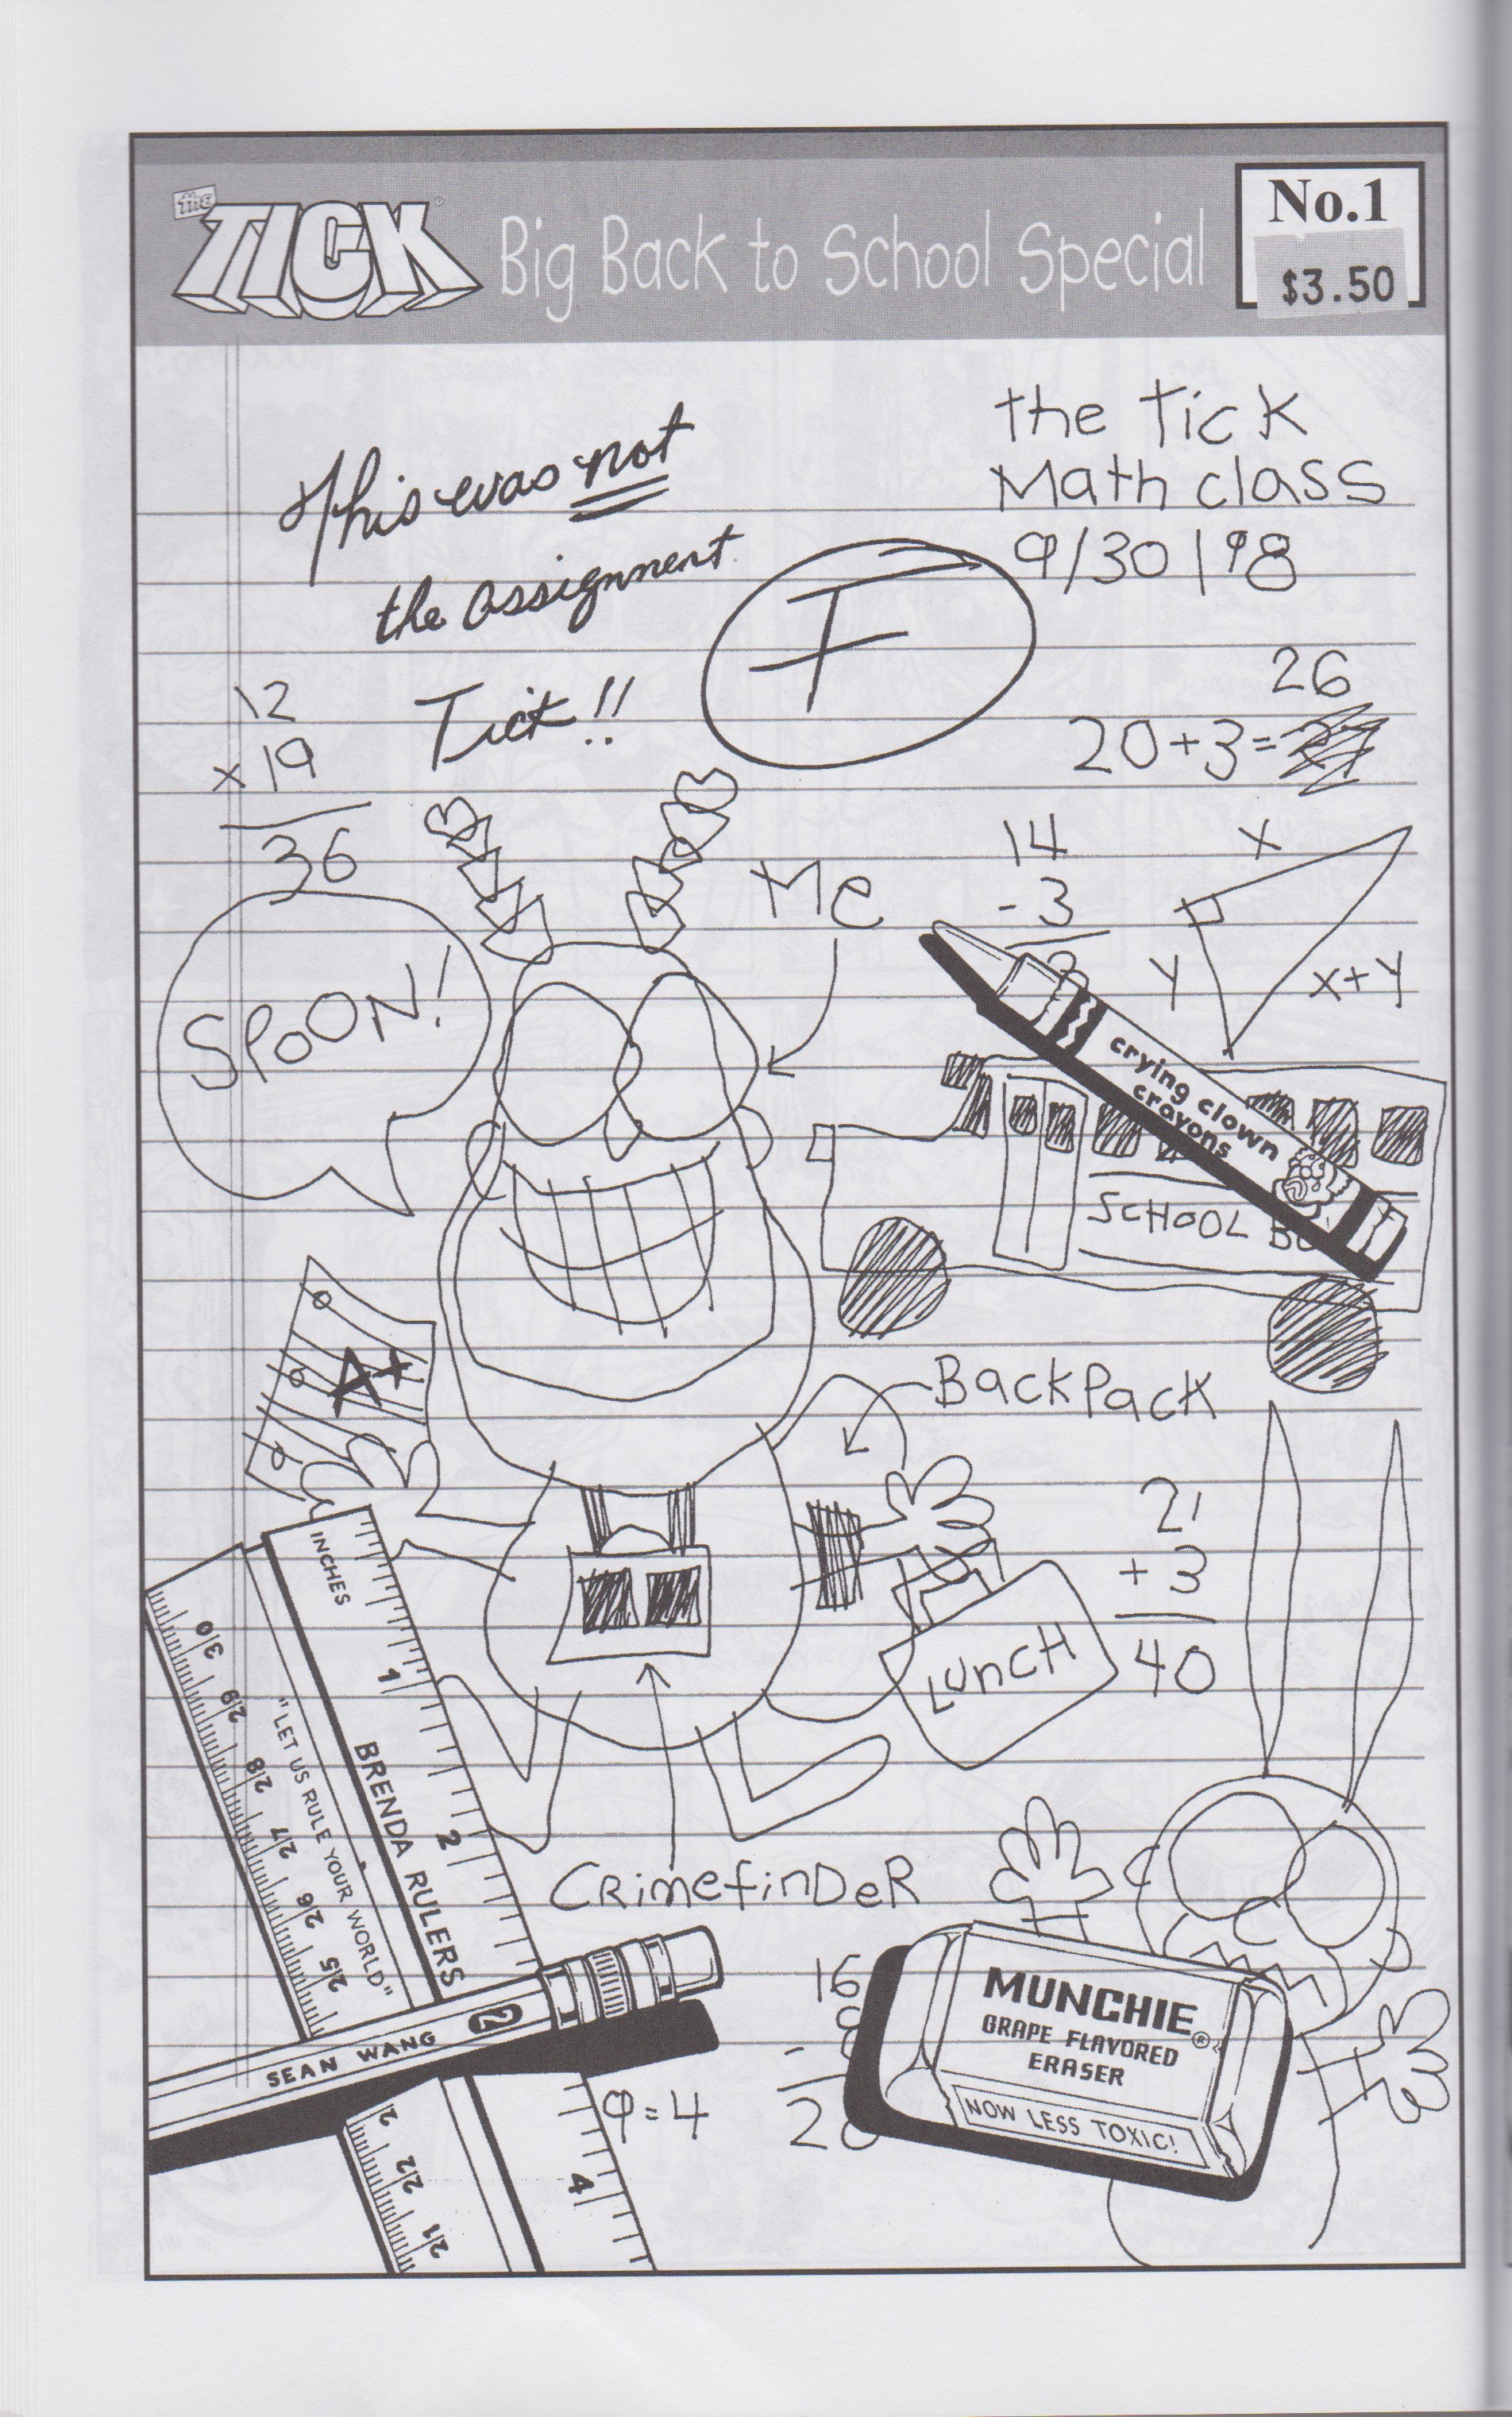 the TICK
Big Back to School Special
No.1
$3.50
This was not
the assignment
Tick!!
F
the Tick
Math class
9/30/98
12
x 19
36
26
20+3=
14
- 3
x
y
x+y
Me
SPOON!
crying clown
crayons
SCHOOL BU
A+
BackPack
21
+ 3
40
LUncH
INCHES
1
2
4
BRENDA RULERS
"LET US RULE YOUR WORLD"
30
29
28
27
26
25
22
21
CRimefinDeR
SEAN WANG 2
9=4
16
-
2
MUNCHIE®
GRAPE FLAVORED
ERASER
NOW LESS TOXIC!